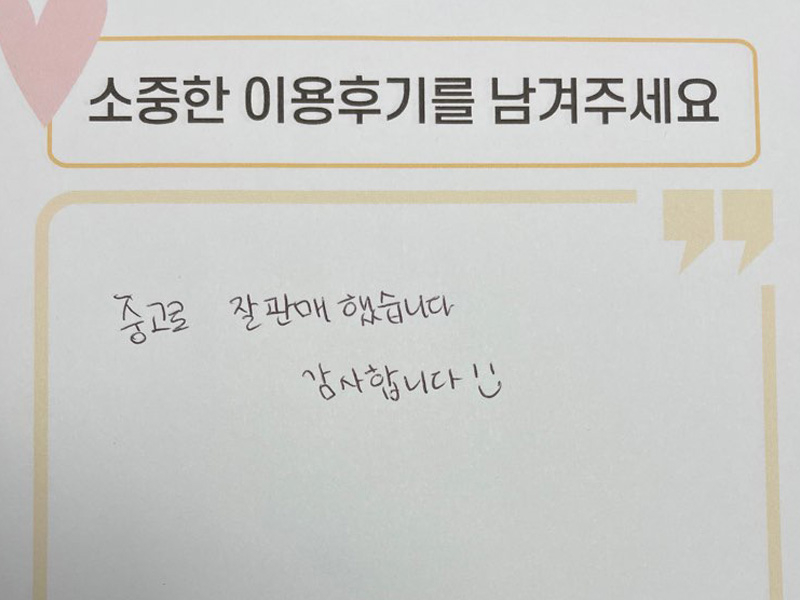 소중한 이용후기를 남겨주세요
중고로 잘 판매 했습니다
감사합니다 :)